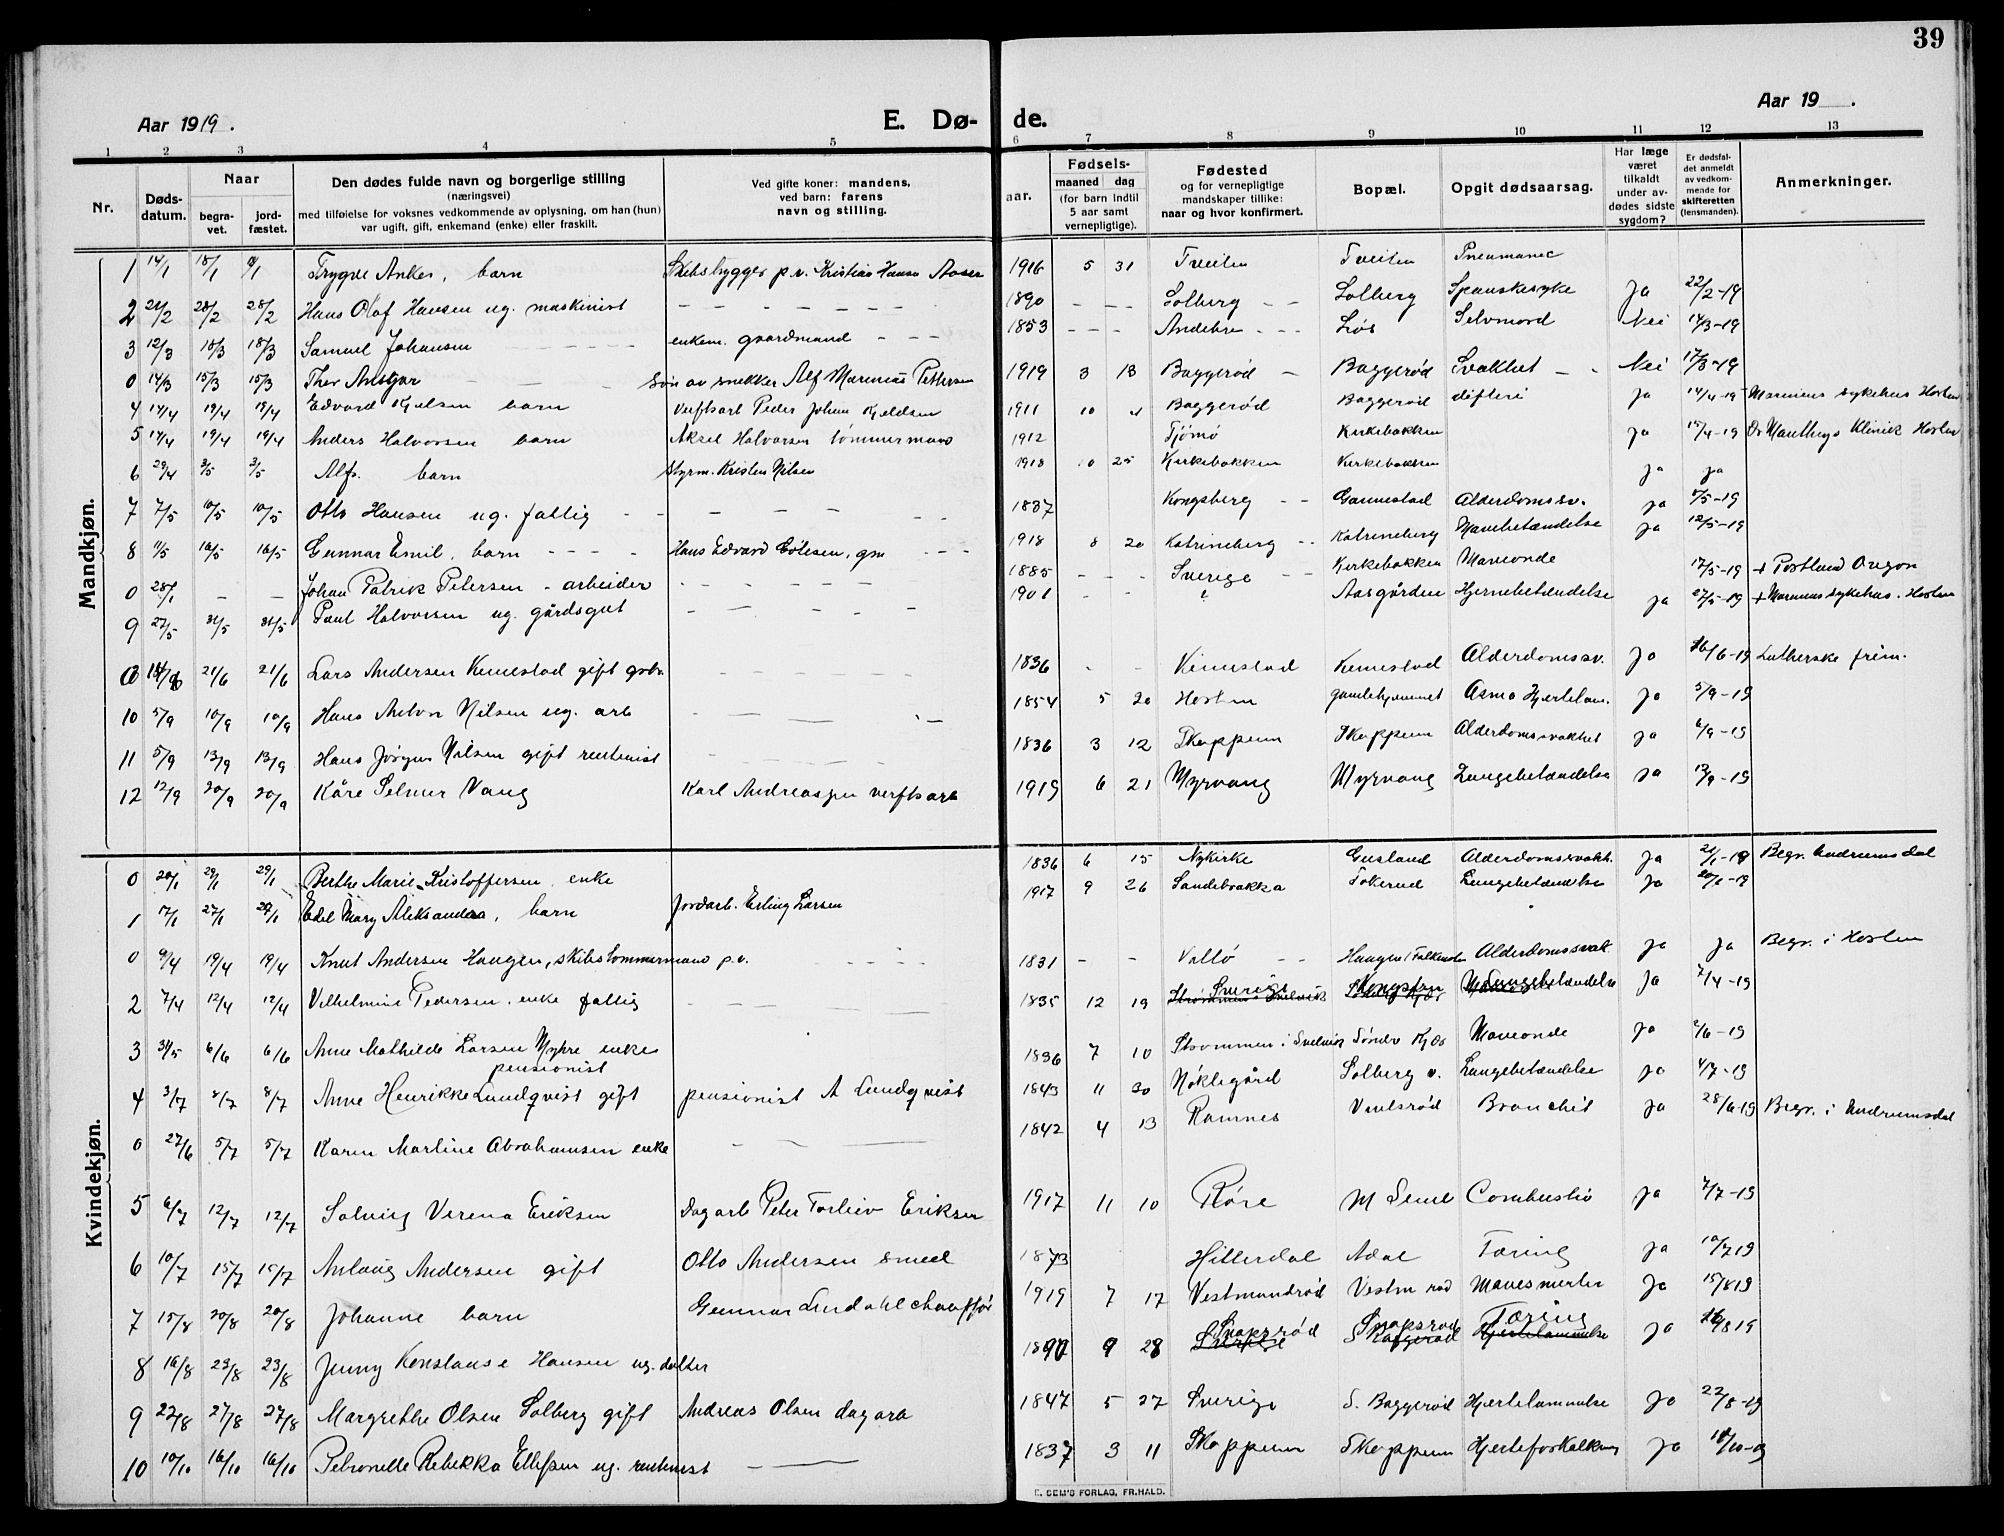 39
Aar 1919.
E. Dø-
de.
Aar 19 .
1 2 3 4 5 6 7 8 9 10 11 12 13
Nr.
Døds-
datum.
Naar
begra-
vet.
jord-
fæstet.
Den dødes fulde navn og borgerlige stilling
(næringsvei)
med tilføielse for voksnes vedkommende av oplysning, om han (hun)
var ugift, gift, enkemand (enke) eller fraskilt.
Ved gifte koner: mandens,
ved barn: farens
navn og stilling.
aar.
Fødsels-
maaned dag
(for barn indtil
5 aar samt
vernepligtige).
Fødested
og for vernepligtige
mandskaper tillike:
naar og hvor konfirmert.
Bopæl.
Opgit dødsaarsag.
Har læge
været
tilkaldt
under av-
dødes sidste
sygdom?
Er dødsfal-
det anmeldt
av vedkom-
mende for
skifteretten
(lensmanden).
Anmerkninger.
Mandkjøn.
1 14/1 18/1 Trygve Anker, barn Skibsbygger p.v. Kristian Hansen 1916 5 31 Tveiten Tveiten
2 21/2 28/2 28/2 Hans Olaf Hansen ug. maskinist — — — — — — 1890 — — — Solberg — — Solberg Spanskesyke Ja 22/2-19
3 12/3 18/3 18/3 Samuel Johansen — — — — — enkem. gaardmand — — — 1853 — — — Andebu — — — Selvmord Nei 14/3-19
0 14/3 15/3 15/3 Thor Ansgar — — — Søn av snekker Alf Marinius Pettersen 1919 3 13 Baggerød — Baggerød Svakhet — - Nei 17/3-19
4 14/4 19/4 19/4 Edvard Kjelsen barn Verftsarb Peder Johan Kjeldsen 1911 10 Baggerød Baggerød difteri Ja 14/4-19 Marinens sykehus Horten
5 14/4 19/4 19/4 Anders Halvorsen barn Aksel Halvorsen tømmermand 1912 Tjømø Kirkebakken ja 15/4-19 Klinik Horten
6 29/4 3/5 3/5 Alf. barn Styrm. Kristen Nilsen 1918 10 25 Kirkebakken Kirkebakken ja ja
7 7/5 10/5 10/5 Otto Hansen ug. fattig — — — — — 1837 Kongsberg — — Gannestad Alderdomssv. ja 8/5-19
8 11/5 16/5 16/5 Gunnar Emil, barn — — — - Hans Edvard — — — 1918 8 20 Katrineberg — — Katrineberg Mavebetændelse ja 12/5-19
0 28/1 — — Johan Patrik Petersen - arbeider — — — — — — 1885 — Sverige — — Kirkebakken Maveonde 17/5-19 + Portland Oregon
9 27/5 31/5 31/5 Paul Halvorsen ug. gårdsgut — — — — 1901 Aasgården Hjernebetændelse ja 27/5-19 + Marinens sykehus. Horten
21/6 21/6 Lars Andersen Kimestad gift gbr. — — — — — 1836 - - Kimestad Kimestad Alderdomssv. Ja 16/6-19 Lutherske frim.
10 5/9 10/9 10/9 Hans Anton Nilsen ug. arb — — — — 1854 5 20 Horten gamlehjemmet Asma Hjertelam. Ja 5/9-19
11 5/9 13/9 13/9 Hans Jørgen Nilsen gift rentenist - — — — — 1836 3 12 Skoppum Skoppum Alderdomssvakhet ja 6/9-19
12 12/9 20/9 20/9 Kåre Selmer Vang Karl Andreassen verftsarb 1919 6 21 Myrvang Myrvang Lungebetændelse ja 13/9-19
Kvindekjøn.
0 20/1 29/1 29/1 Berthe Marie Kristoffersen enke 1836 6 15 Nykirke Gusland Alderdomssvakh. ja 21/1-19 Begr. Undrumsdal
1 17/1 27/1 28/1 Edel Mary Aleksandra, barn Jordarb. Erling Larsen 1917 9 26 Sandebrakka Tokerud Lungebetændelse Ja 20/1-19
0 9/4 19/4 19/4 Knut Andersen Haugen, skibstømmermand p.v. — — — — 1831 - - Vallø — — Haugen Alderdomssvak. ja ja Begr. i Horten
2 7/4 12/4 12/4 Vilhelmine Pedersen. enke fattig — — — — — 1835 12 19 Sverige Lungebetændelse Ja 7/4-19
3 31/5 6/6 6/6 Anne Mathilde Larsen Myhre enke
pensionist 1836 7 10 Strømmen i Svelvik Søndre Kjær Maveonde ja 2/6-19
4 3/7 8/7 8/7 Anne Henrikke Lundqvist gift pensionist A Lundqvist 1843 11 30 Nøklegård Solberg v. Lungebetændelse ja 4/7-19
0 27/6 5/7 5/7 Karen Martine Abrahamsen enke — — — 1842 4 13 Ramnes Bronchit ja 28/6-19 Begr. i Undrumsdal
5 6/7 12/7 12/7 Solveig Verena Eriksen Dagarb Peter Torleiv Eriksen 1917 11 10 Røre M Semb Combustio ja 7/7-19
6 10/7 15/7 15/7 Anlaug Andersen gift Otto Andersen smed 1873 Hitterdal Adal Tæring ja 10/7 19
7 15/8 20/8 20/8 Johanne barn Gunnar Lindahl chauffør 1919 7 17 Vestmundrød Vestm rød Mavesmerter ja 15/8 19
8 16/8 23/8 23/8 Jenny Konstanse Hansen ug. datter 1890 9 28 Snapsrød Snapsrød Tæring ja 16/8 19
9 22/8 27/8 27/8 Margrethe Olsen Solberg gift Andreas Olsen dagarb 1847 5 27 Sverige S. Baggerød Hjertelammelse ja 22/8-19
10 10/10 16/10 16/10 Petronelle Rebekka Ellefsen ug. rentenist — — 1837 3 11 Skoppum Skoppum Hjerteforkalkning ja
E. SEM'S FORLAG, FR.HALD.